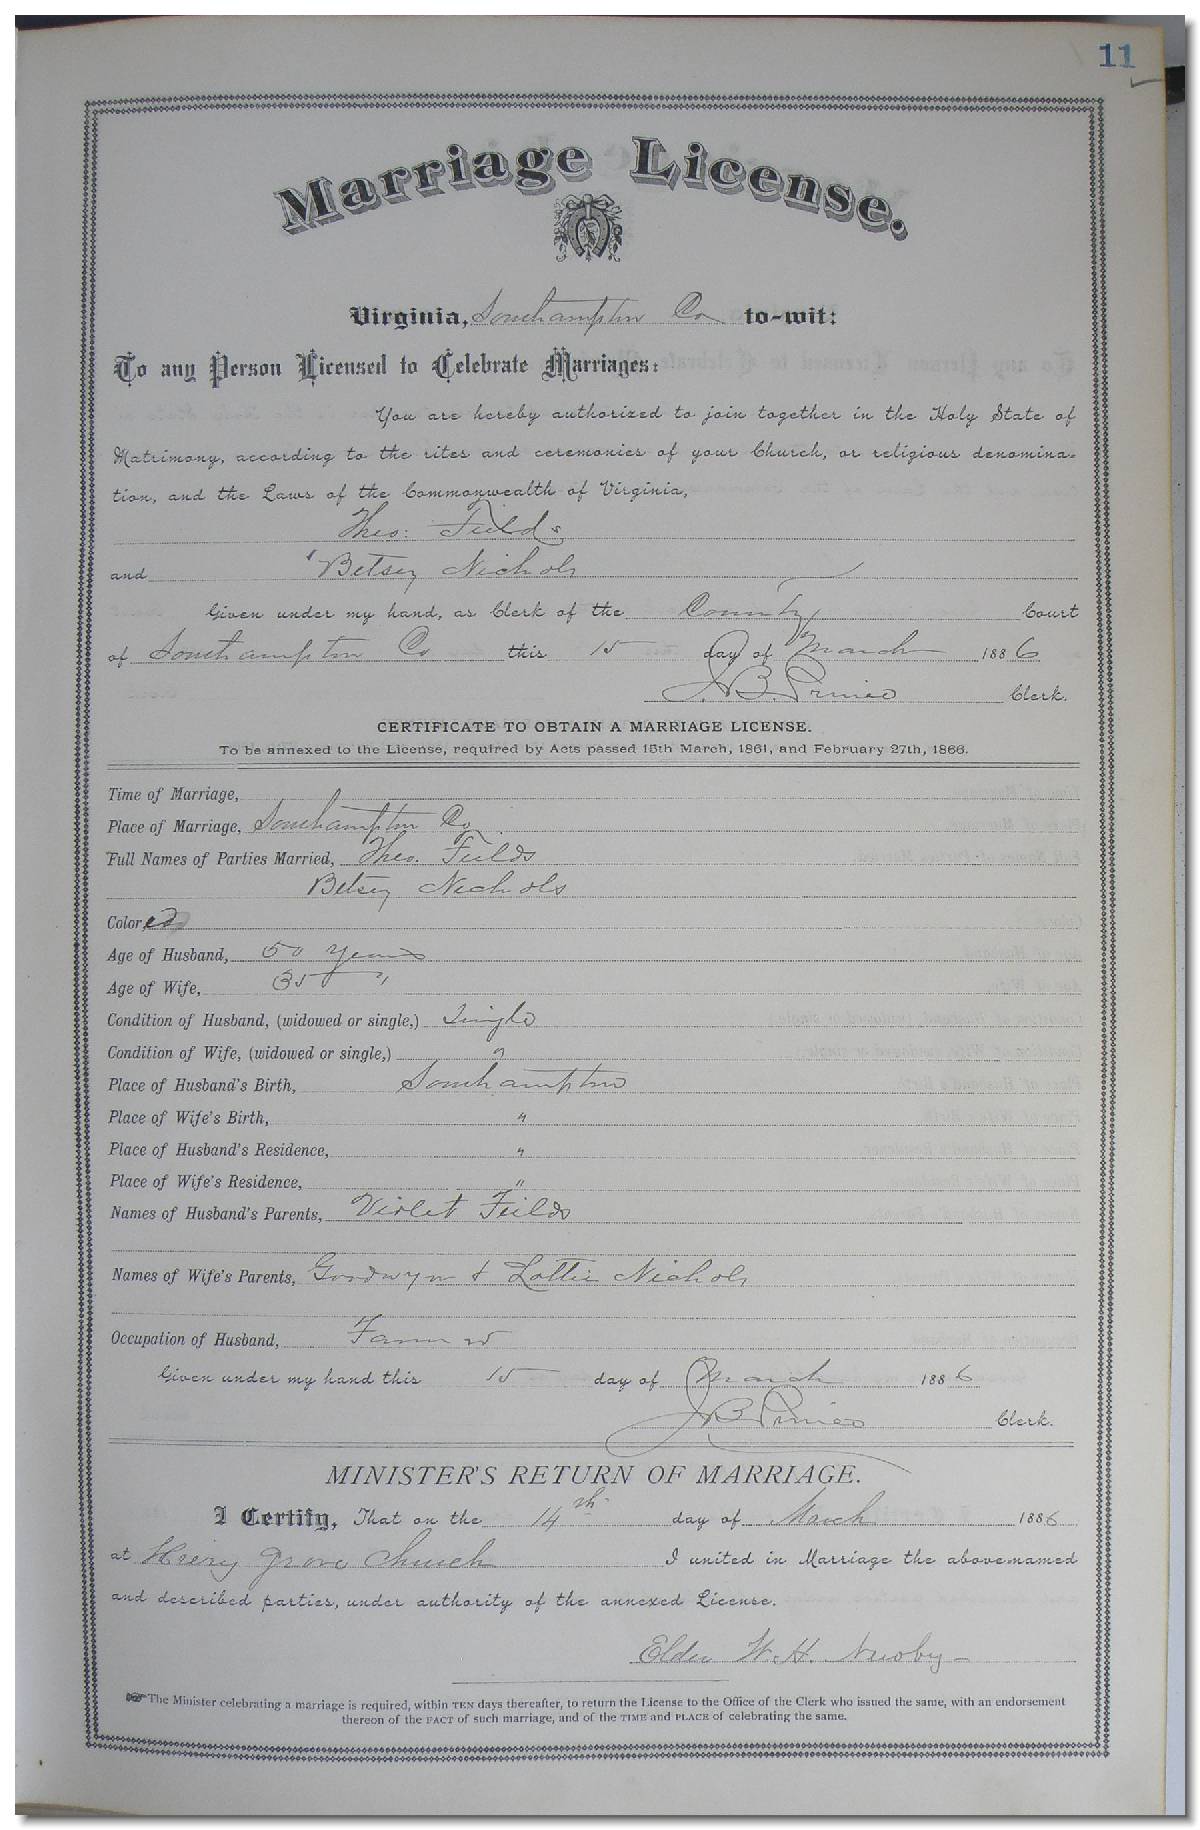 11
Marriage License.
Virginia, Southampton Co to-wit:
To any Person Licensed to Celebrate Marriages:
You are hereby authorized to join together in the Holy State of
Matrimony, according to the rites and ceremonies of your Church, or religious denomina-
tion, and the Laws of the Commonwealth of Virginia,
Theo: Feilds
and Betsey Nichols
Given under my hand, as Clerk of the County Court
of Southampton Co this 15 day of March 1886
J. B. Prince Clerk.
CERTIFICATE TO OBTAIN A MARRIAGE LICENSE.
To be annexed to the License, required by Acts passed 15th March, 1861, and February 27th, 1866.
Time of Marriage,
Place of Marriage, Southampton Co
Full Names of Parties Married, Theo. Feilds
Betsey Nichols
Colored
Age of Husband, 50 years
Age of Wife, 35 "
Condition of Husband, (widowed or single,) Single
Condition of Wife, (widowed or single,) "
Place of Husband's Birth, Southampton
Place of Wife's Birth, "
Place of Husband's Residence, "
Place of Wife's Residence, "
Names of Husband's Parents, Violet Feilds
Names of Wife's Parents, Goodwyn & Lottie Nichols
Occupation of Husband, Farmer
Given under my hand this 15 day of March 1886
J B Prince Clerk.
MINISTER'S RETURN OF MARRIAGE.
I Certify, That on the 14th day of March 1886
at Grove Church I united in Marriage the above-named
and described parties, under authority of the annexed License.
Elder W. H. Newby
☞ The Minister celebrating a marriage is required, within TEN days thereafter, to return the License to the Office of the Clerk who issued the same, with an endorsement
thereon of the FACT of such marriage, and of the TIME and PLACE of celebrating the same.